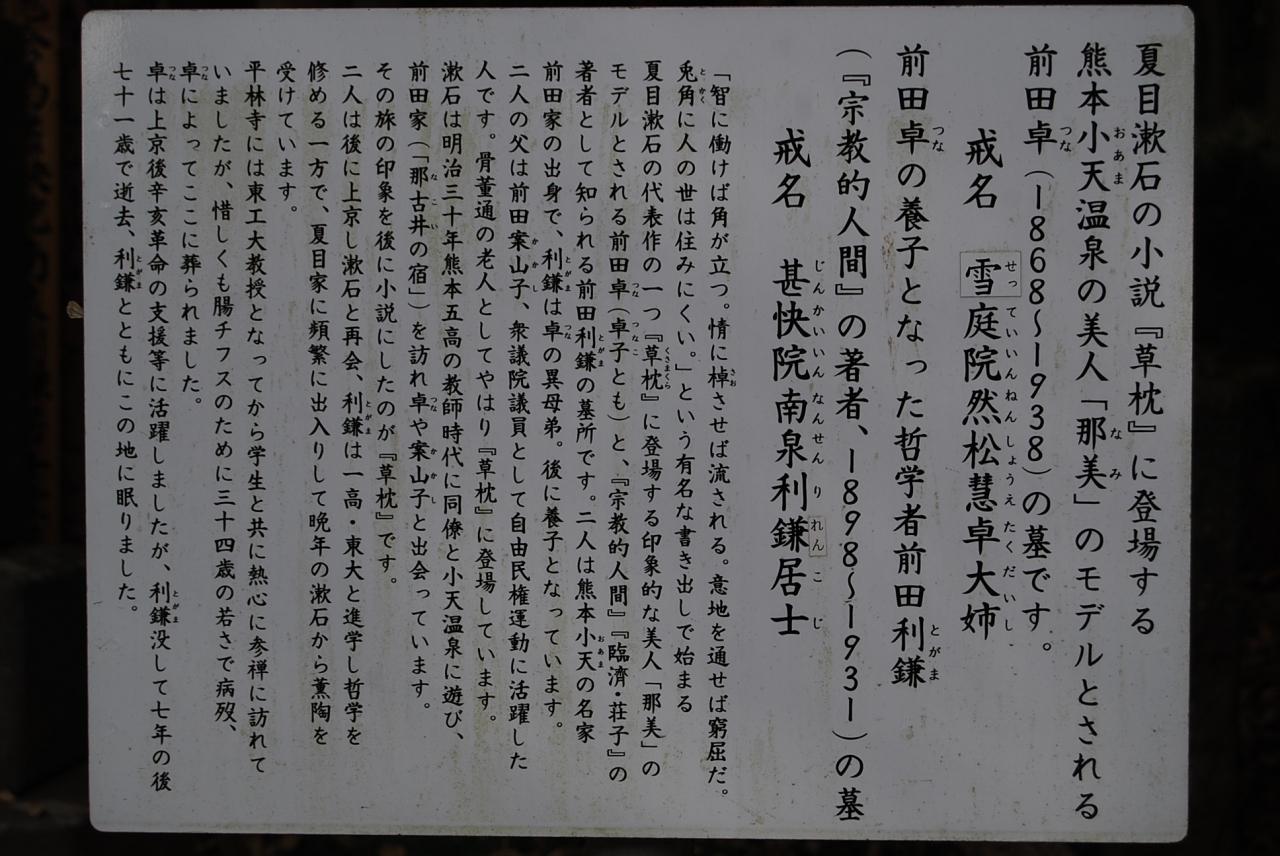 夏目漱石の小説『草枕』に登場する
熊本小天温泉の美人「那美」のモデルとされる
前田卓（1868〜1938）の墓です。
戒名　雪庭院然松慧卓大姉
前田卓の養子となった哲学者前田利鎌
（『宗教的人間』の著者、1898〜1931）の墓
戒名　甚快院南泉利鎌居士
「智に働けば角が立つ。情に棹させば流される。意地を通せば窮屈だ。
兎角に人の世は住みにくい。」という有名な書き出しで始まる
夏目漱石の代表作の一つ『草枕』に登場する印象的な美人「那美」の
モデルとされる前田卓（卓子とも）と、『宗教的人間』『臨濟・荘子』の
著者として知られる前田利鎌の墓所です。二人は熊本小天の名家
前田家の出身で、利鎌は卓の異母弟。後に養子となっています。
二人の父は前田案山子、衆議院議員として自由民権運動に活躍した
人です。骨董通の老人としてやはり『草枕』に登場しています。
漱石は明治三十年熊本五高の教師時代に同僚と小天温泉に遊び、
前田家（「那古井の宿」）を訪れ卓や案山子と出会っています。
その旅の印象を後に小説にしたのが『草枕』です。
二人は後に上京し漱石と再会、利鎌は一高・東大と進学し哲学を
修める一方で、夏目家に頻繁に出入りして晩年の漱石から薫陶を
受けています。
平林寺には東工大教授となってから学生と共に熱心に参禅に訪れて
いましたが、惜しくも腸チフスのために三十四歳の若さで病歿、
卓によってここに葬られました。
卓は上京後辛亥革命の支援等に活躍しましたが、利鎌没して七年の後
七十一歳で逝去、利鎌とともにこの地に眠りました。